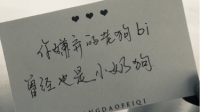 你嫌弃的老狗bi
曾经也是小奶狗
NGDAOFEIQI